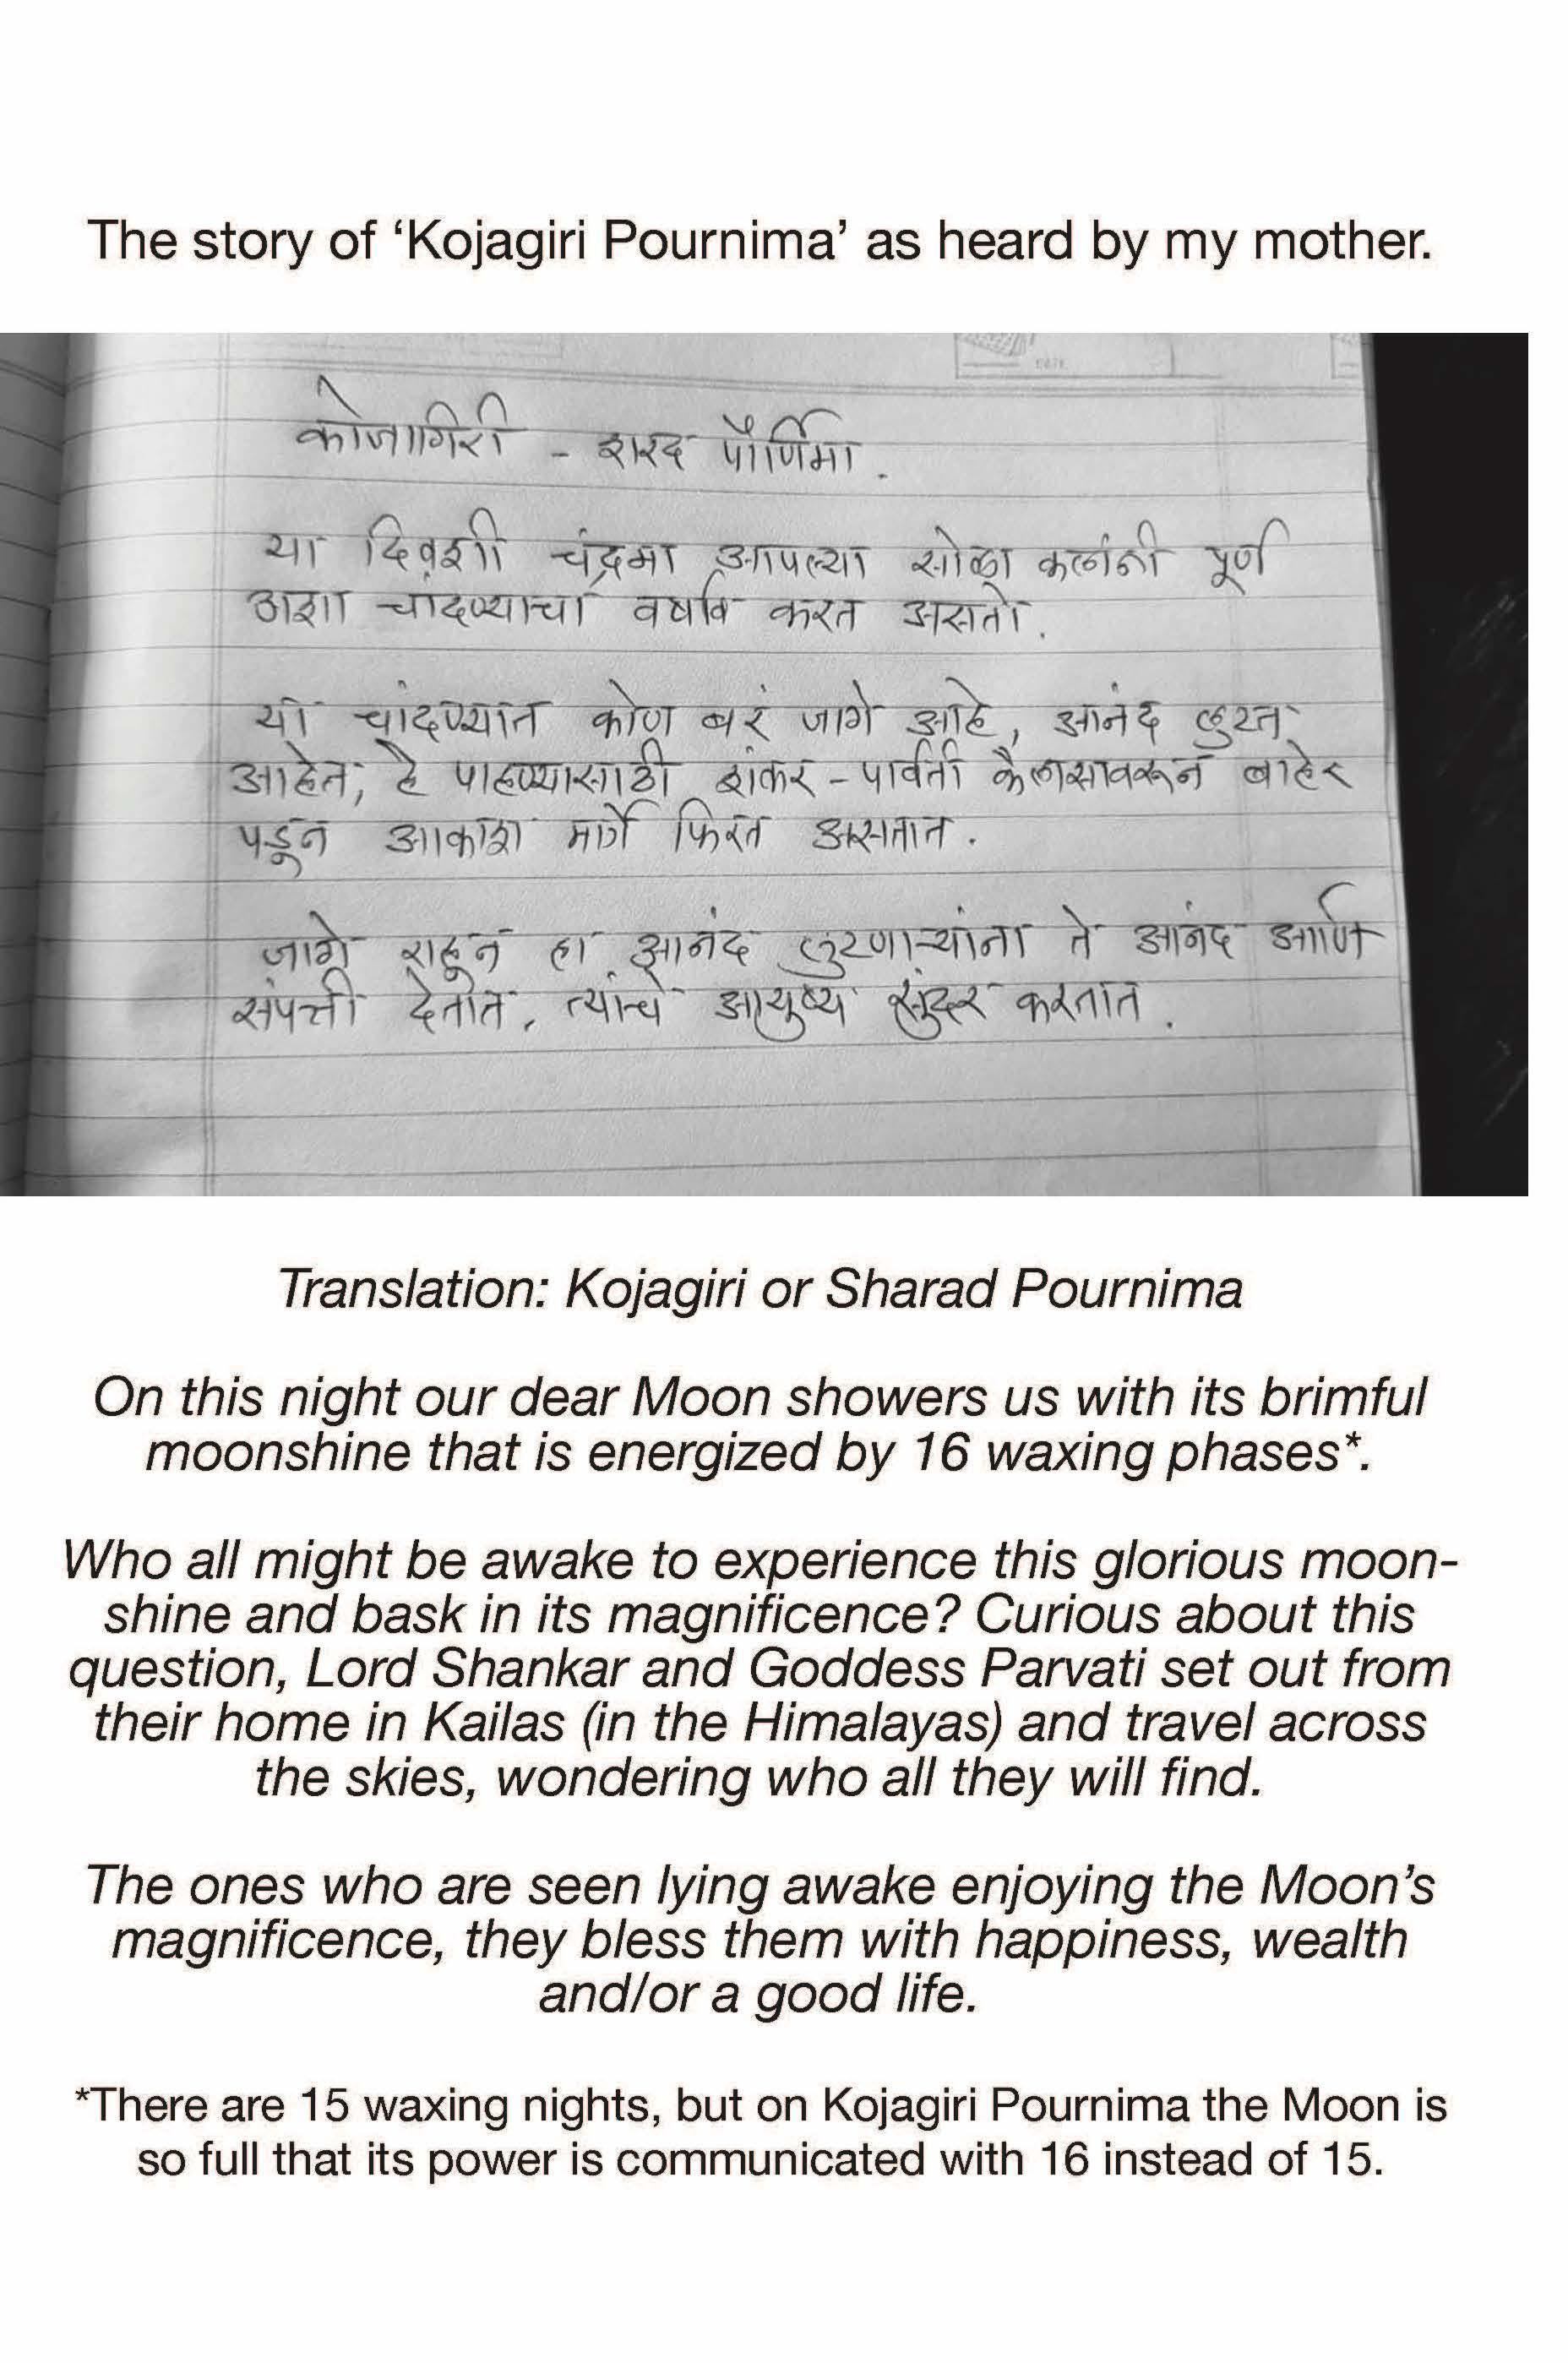 The story of ‘Kojagiri Pournima’ as heard by my mother.
कोजागिरी - शरद पौर्णिमा.
या दिवशी चंद्रमा आपल्या सोळा कलांनी पूर्ण
अशा चांदण्याचा वर्षाव करत असतो.
या चांदण्यात कोण बरं जागे आहे, आनंद लुटत
आहेत, हे पाहण्यासाठी शंकर - पार्वती कैलासावरून बाहेर
पडून आकाश मार्गे फिरत असतात.
जागे राहून हा आनंद लुटणाऱ्यांना ते आनंद आणि
संपत्ती देतात, त्यांचे आयुष्य सुंदर करतात.
Translation: Kojagiri or Sharad Pournima
On this night our dear Moon showers us with its brimful
moonshine that is energized by 16 waxing phases*.
Who all might be awake to experience this glorious moon-
shine and bask in its magnificence? Curious about this
question, Lord Shankar and Goddess Parvati set out from
their home in Kailas (in the Himalayas) and travel across
the skies, wondering who all they will find.
The ones who are seen lying awake enjoying the Moon’s
magnificence, they bless them with happiness, wealth
and/or a good life.
*There are 15 waxing nights, but on Kojagiri Pournima the Moon is
so full that its power is communicated with 16 instead of 15.